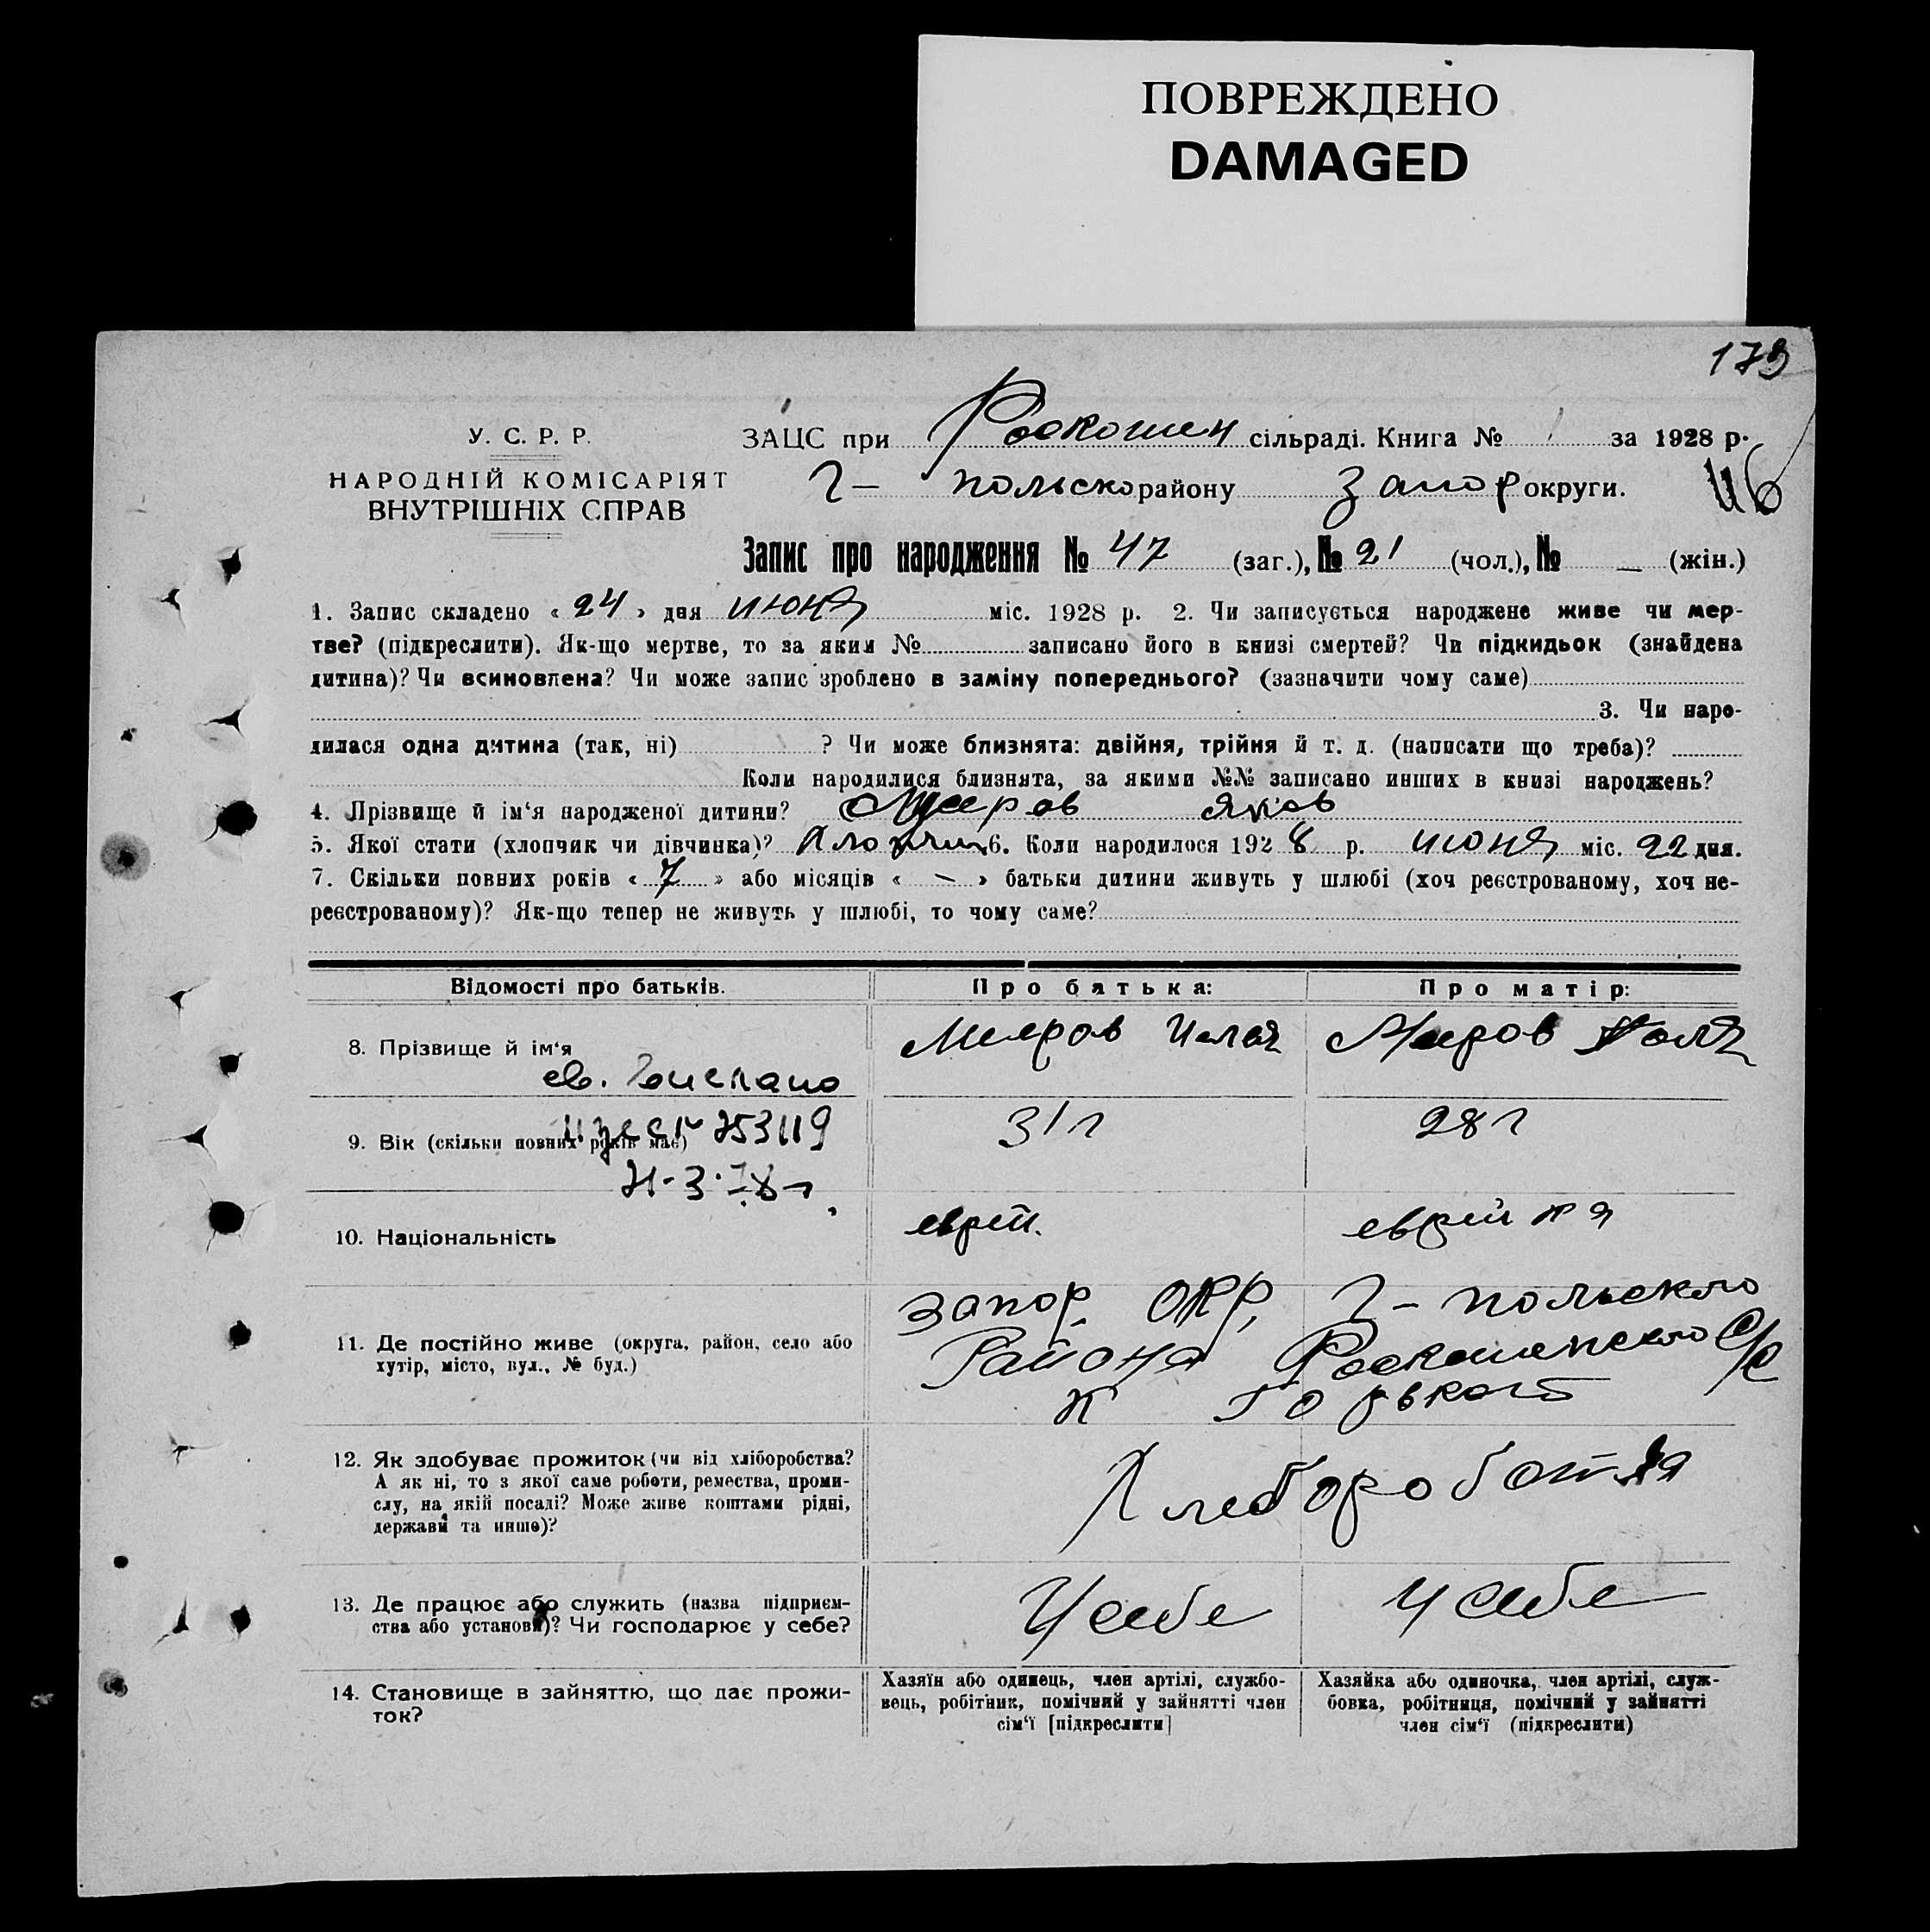 ПОВРЕЖДЕНО
DAMAGED
179
У. С. Р. Р.
НАРОДНІЙ КОМІСАРІЯТ
ВНУТРІШНІХ СПРАВ
ЗАЦС при Роскошен сільраді. Книга № 1 за 1928 р.
Г- польско району Запор округи.
116
Запис про народження № 47 (заг.), № 21 (чол.), № — (жін.)
1. Запис складено « 24 » дня июня міс. 1928 р. 2. Чи записується народжене живе чи мер-
тве? (підкреслити). Як-що мертве, то за яким № записано його в книзі смертей? Чи підкидьок (знайдена
дитина)? Чи всиновлена? Чи може запис зроблено в заміну попереднього? (зазначити чому саме)
3. Чи наро-
дилася одна дитина (так, ні) ? Чи може близнята: двійня, трійня й т. д. (написати що треба)?
Коли народилися близнята, за якими №№ записано инших в книзі народжень?
4. Прізвище й ім‘я народженої дитини? Меров Яков
5. Якої стати (хлопчик чи дівчинка)? Хлопчик 6. Коли народилося 1928 р. июня міс. 22 дня.
7. Скільки повних років « 7 » або місяців « — » батьки дитини живуть у шлюбі (хоч реєстрованому, хоч не-
реєстрованому)? Як-що тепер не живуть у шлюбі, то чому саме?
Відомості про батьків. Про батька: Про матір:
8. Прізвище й ім‘я Меров Меров
св.
9. Вік (скільки повних років має) 753119 31 г 28 г
10. Національність еврей. еврейка
11. Де постійно живе (округа, район, село або
хутір, місто, вул., № буд.)
Запор. окр, Г- польского
Района Роскошенского с/с
к Горького
12. Як здобуває прожиток (чи від хліборобства?
А як ні, то з якої саме роботи, ремества, проми-
слу, на якій посаді? Може живе коштами рідні,
держави та инше)?
13. Де працює або служить (назва підприєм-
ства або установи)? Чи господарює у себе?
У себе у себе
14. Становище в зайняттю, що дає прожи-
ток?
Хазяїн або одинець, член артілі, службо-
вець, робітник, помічний у зайнятті член
сім‘ї [підкреслити]
Хазяйка або одиночка, член артілі, служ-
бовка, робітниця, помічний у зайнятті
член сім‘ї (підкреслити)